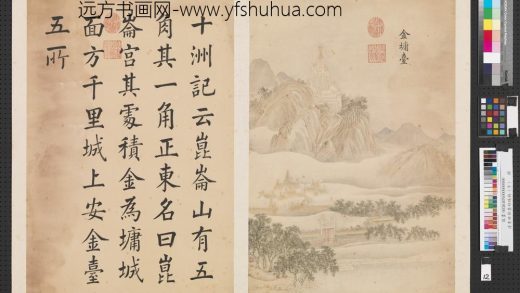 远方书画网- www.yfshuhua.com
金墉臺
十洲記云崑崙山有五
角其一角正東名曰崑
崙宮其處積金為墉城
面方千里城上安金臺
五所
12